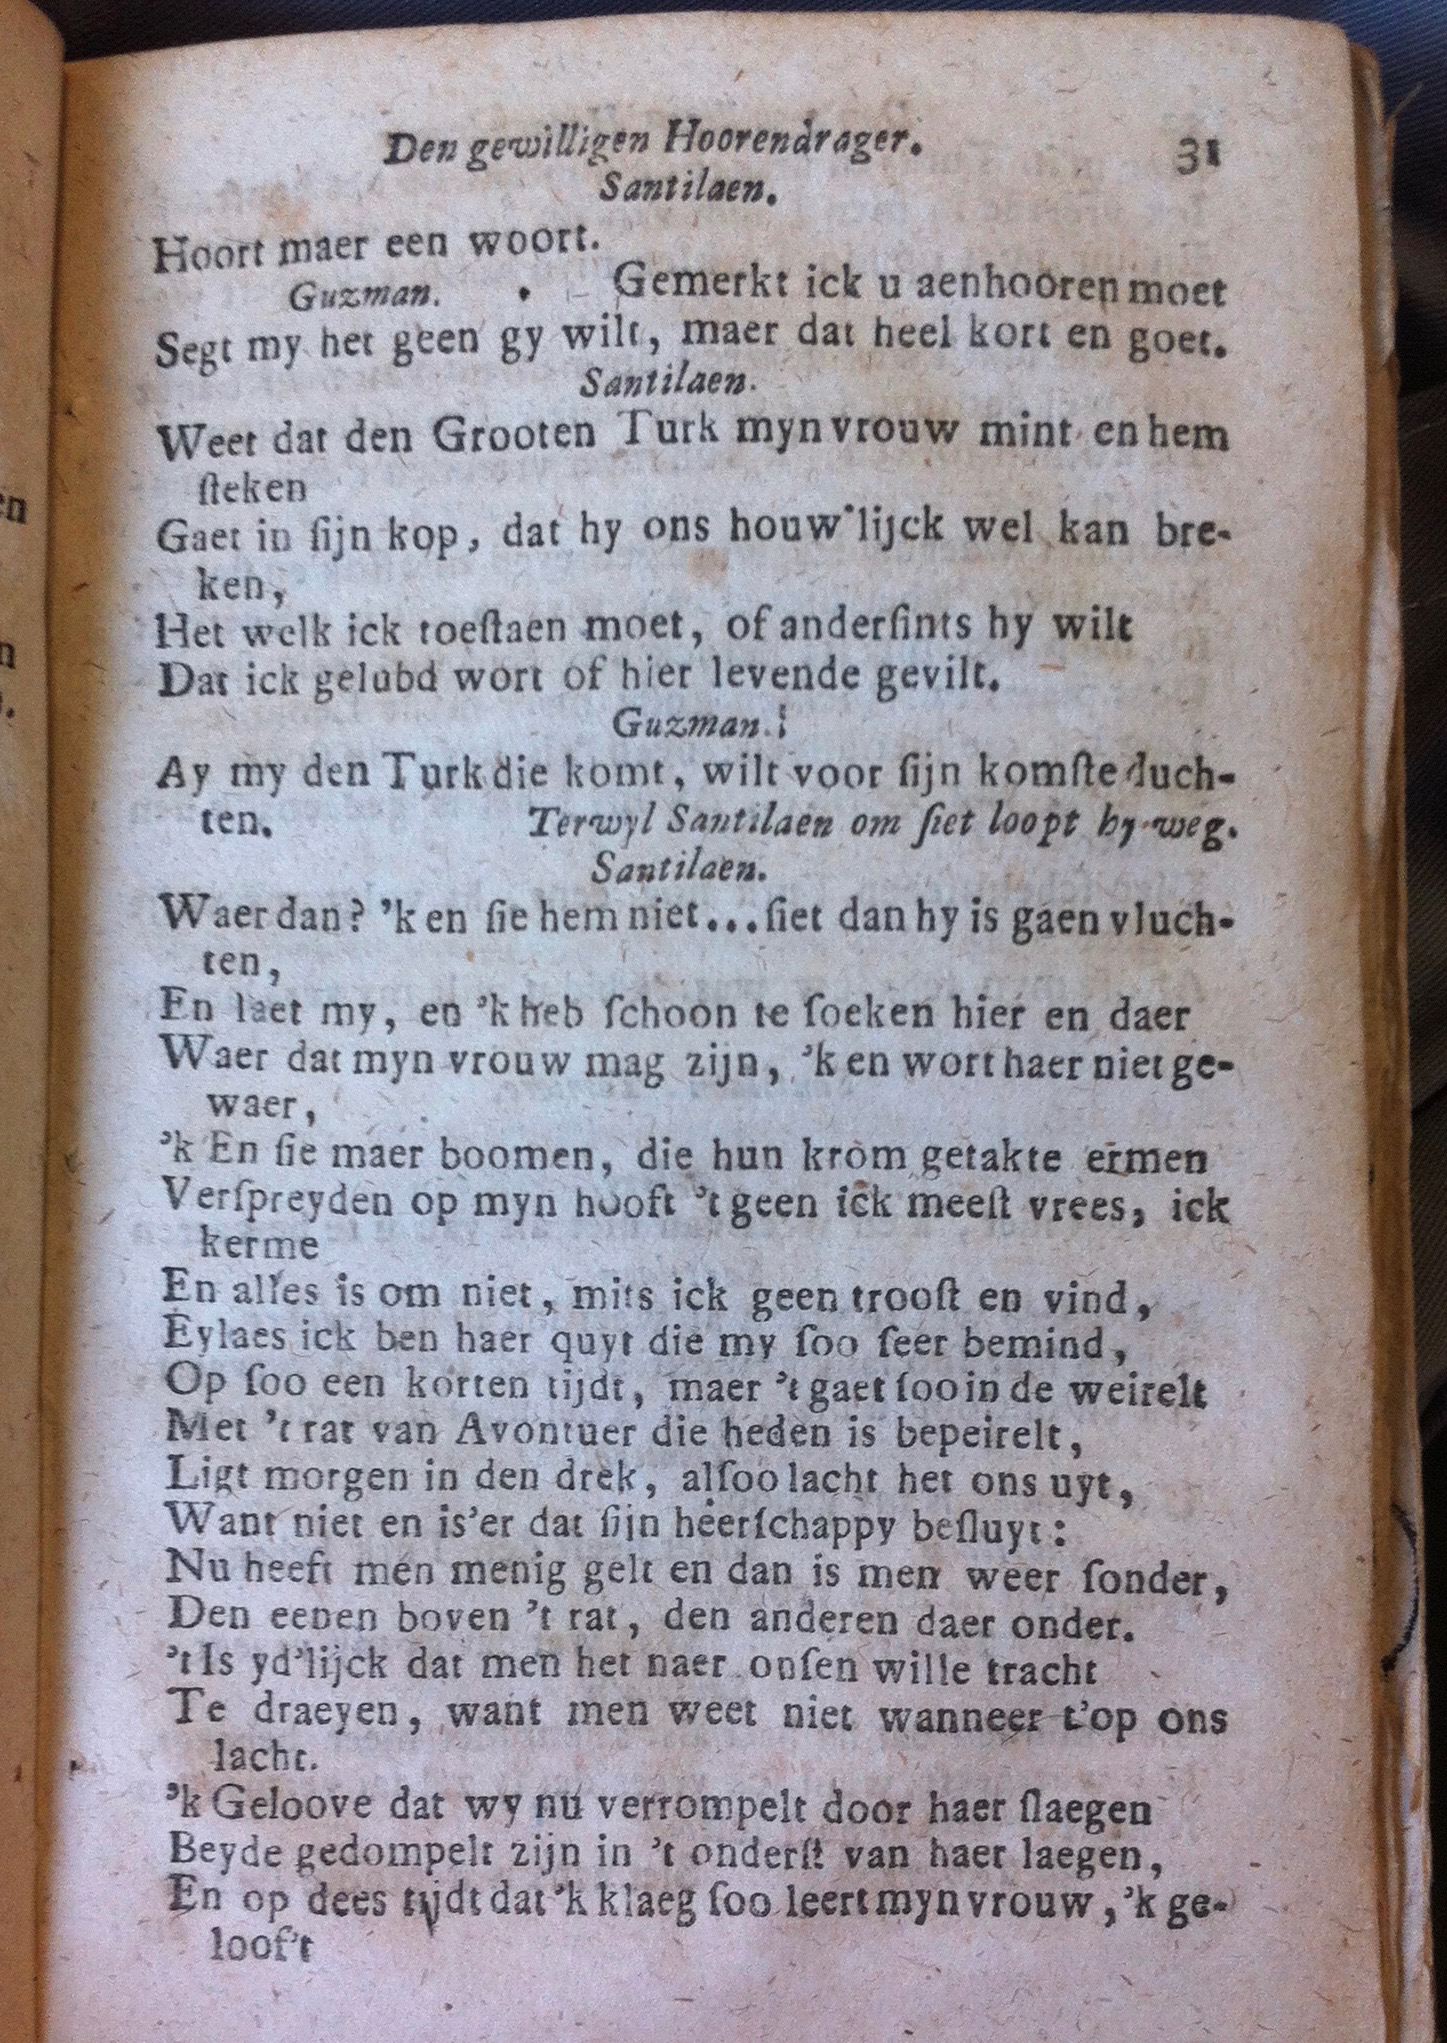 Den gewilligen Hoorendrager. 31
Santilaen.
Hoort maer een woort.
Guzman. Gemerkt ick u aenhooren moet
Segt my het geen gy wilt, maer dat heel kort en goet.
Santilaen.
Weet dat den Grooten Turk myn vrouw mint en hem
ſteken
Gaet in ſijn kop, dat hy ons houw'lijck wel kan bre-
ken,
Het welk ick toeſtaen moet, of anderſints hy wilt
Dat ick gelubd wort of hier levende gevilt.
Guzman.
Ay my den Turk die komt, wilt voor ſijn komſte duch-
ten. Terwyl Santilaen om ſiet loopt hy weg.
Santilaen.
Waer dan? 'k en ſie hem niet... ſiet dan hy is gaen vluch-
ten,
En laet my, en 'k heb ſchoon te ſoeken hier en daer
Waer dat myn vrouw mag zijn, 'k en wort haer niet ge-
waer,
'k En ſie maer boomen, die hun krom getakte ermen
Verſpreyden op myn hooft 't geen ick meeſt vrees, ick
kerme
En alles is om niet, mits ick geen trooſt en vind,
Eylaes ick ben haer quyt die my ſoo ſeer bemind,
Op ſoo een korten tijdt, maer 't gaet ſoo in de weirelt
Met 't rat van Avontuer die heden is bepeirelt,
Ligt morgen in den drek, alſoo lacht het ons uyt,
Want niet en is'er dat ſijn heerſchappy beſluyt:
Nu heeft men menig gelt en dan is men weer ſonder,
Den eenen boven 't rat, den anderen daer onder.
't Is yd'lijck dat men het naer onſen wille tracht
Te draeyen, want men weet niet wanneer t'op ons
lacht.
'k Geloove dat wy nu verrompelt door haer ſlaegen
Beyde gedompelt zijn in 't onderſt van haer laegen,
En op dees tijdt dat 'k klaeg ſoo leert myn vrouw, 'k ge-
looft